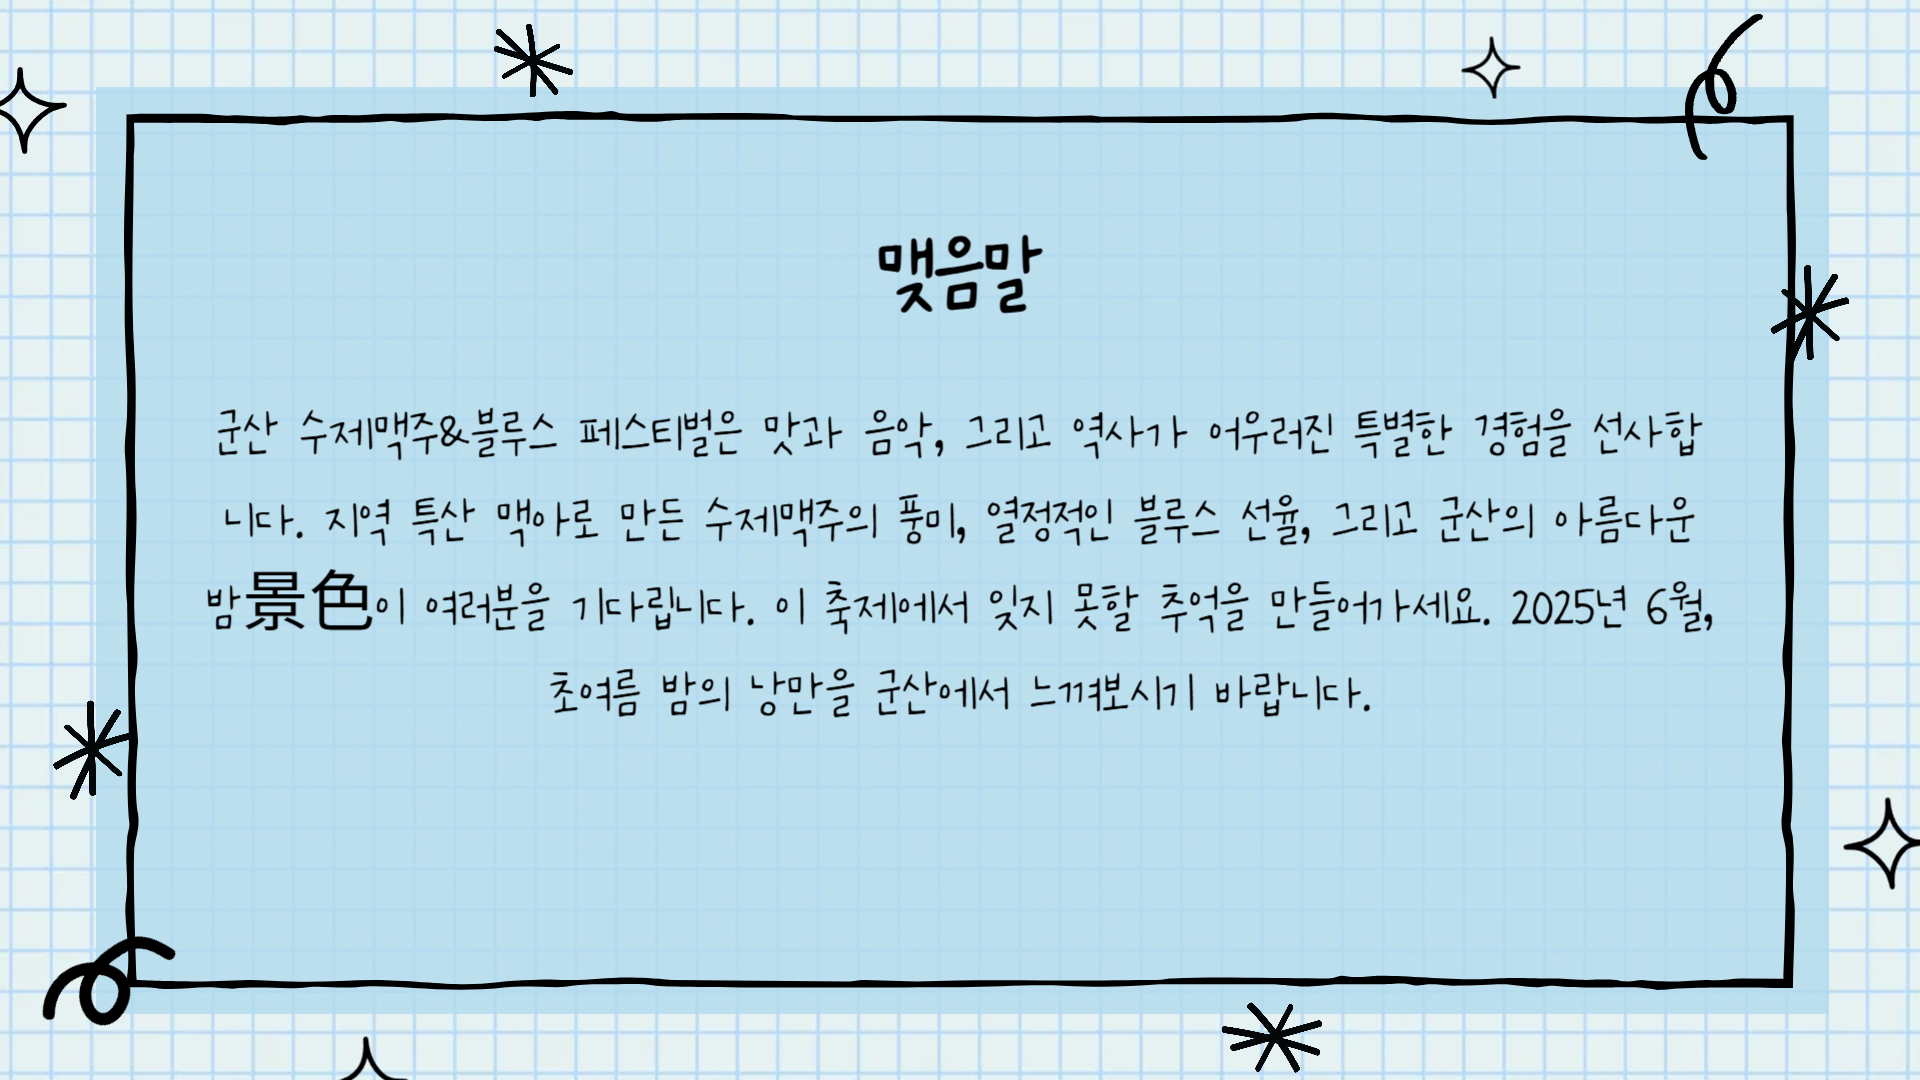 맺음말
군산 수제맥주&블루스 페스티벌은 맛과 음악, 그리고 역사가 어우러진 특별한 경험을 선사합
니다. 지역 특산 맥아로 만든 수제맥주의 풍미, 열정적인 블루스 선율, 그리고 군산의 아름다운
밤景色이 여러분을 기다립니다. 이 축제에서 잊지 못할 추억을 만들어가세요. 2025년 6월,
초여름 밤의 낭만을 군산에서 느껴보시기 바랍니다.